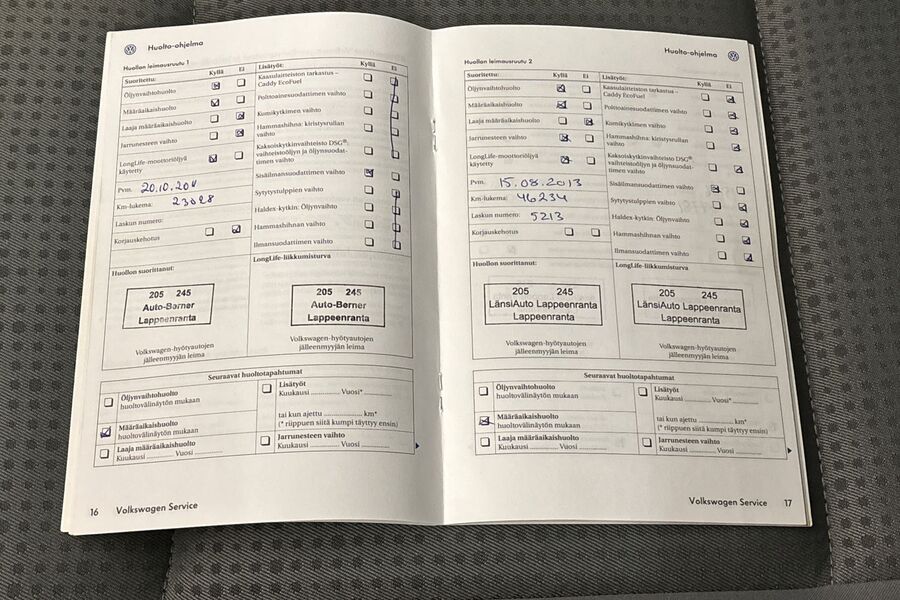 Huolto-ohjelma
Huollon leimausruutu 1
Suoritettu: Kyllä Ei
Öljynvaihtohuolto
Määräaikaishuolto
Laaja määräaikaishuolto
Jarrunesteen vaihto
LongLife-moottoriöljyä
käytetty
Pvm. 20.10.2011
Km-lukema: 23028
Laskun numero:
Korjauskehotus
Lisätyöt: Kyllä Ei
Kaasulaitteiston tarkastus –
Caddy EcoFuel
Polttoainesuodattimen vaihto
Kumikytkimen vaihto
Hammashihna: kiristysrullan
vaihto
Kaksoiskytkinvaihteisto DSG®:
vaihteistoöljyn ja öljynsuodat-
timen vaihto
Sisäilmansuodattimen vaihto
Sytytystulppien vaihto
Haldex-kytkin: Öljynvaihto
Hammashihnan vaihto
Ilmansuodattimen vaihto
Huollon suorittanut:
205 245
Auto-Berner
Lappeenranta
Volkswagen-hyötyautojen
jälleenmyyjän leima
LongLife-liikkumisturva
205 245
Auto-Berner
Lappeenranta
Volkswagen-hyötyautojen
jälleenmyyjän leima
Seuraavat huoltotapahtumat
Öljynvaihtohuolto
huoltovälinäytön mukaan
Määräaikaishuolto
huoltovälinäytön mukaan
Laaja määräaikaishuolto
Kuukausi ............ Vuosi ............
Lisätyöt
Kuukausi ............ Vuosi*
tai kun ajettu ............ km*
(* riippuen siitä kumpi täyttyy ensin)
Jarrunesteen vaihto
Kuukausi ............ Vuosi ............
16 Volkswagen Service
Huolto-ohjelma
Huollon leimausruutu 2
Suoritettu: Kyllä Ei
Öljynvaihtohuolto
Määräaikaishuolto
Laaja määräaikaishuolto
Jarrunesteen vaihto
LongLife-moottoriöljyä
käytetty
Pvm. 15.08.2013
Km-lukema: 46234
Laskun numero: 5213
Korjauskehotus
Lisätyöt: Kyllä Ei
Kaasulaitteiston tarkastus –
Caddy EcoFuel
Polttoainesuodattimen vaihto
Kumikytkimen vaihto
Hammashihna: kiristysrullan
vaihto
Kaksoiskytkinvaihteisto DSG®:
vaihteistoöljyn ja öljynsuodat-
timen vaihto
Sisäilmansuodattimen vaihto
Sytytystulppien vaihto
Haldex-kytkin: Öljynvaihto
Hammashihnan vaihto
Ilmansuodattimen vaihto
Huollon suorittanut:
205 245
LänsiAuto Lappeenranta
Lappeenranta
Volkswagen-hyötyautojen
jälleenmyyjän leima
LongLife-liikkumisturva
205 245
LänsiAuto Lappeenranta
Lappeenranta
Volkswagen-hyötyautojen
jälleenmyyjän leima
Seuraavat huoltotapahtumat
Öljynvaihtohuolto
huoltovälinäytön mukaan
Määräaikaishuolto
huoltovälinäytön mukaan
Laaja määräaikaishuolto
Kuukausi ............ Vuosi ............
Lisätyöt
Kuukausi ............ Vuosi*
tai kun ajettu ............ km*
(* riippuen siitä kumpi täyttyy ensin)
Jarrunesteen vaihto
Kuukausi ............ Vuosi ............
Volkswagen Service 17